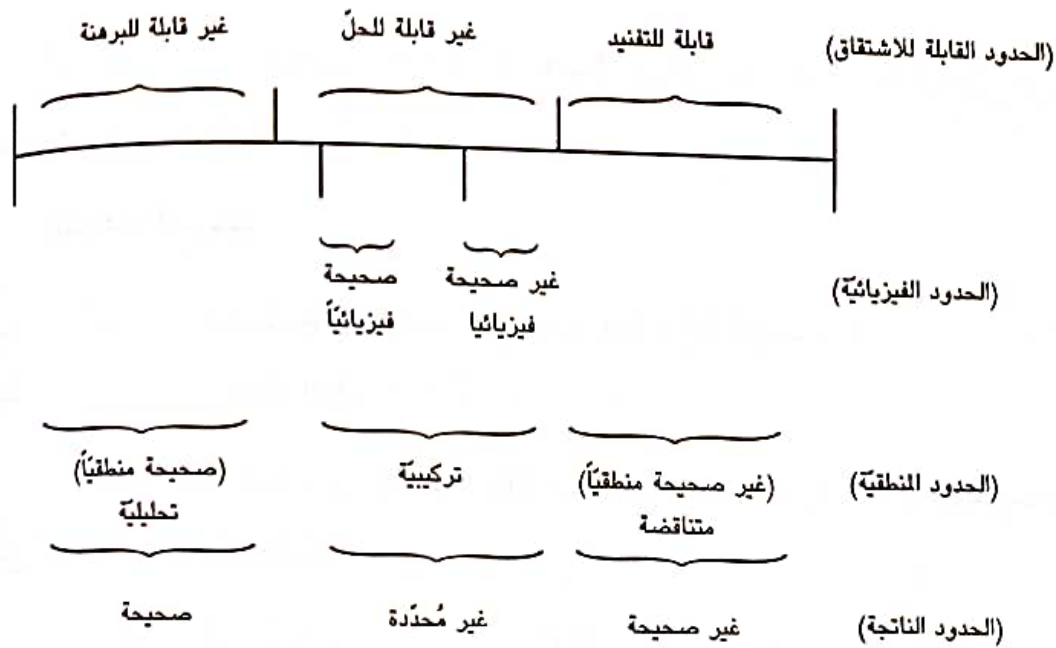 (الحدود القابلة للاشتقاق) قابلة للتفنيد غير قابلة للحلّ غير قابلة للبرهنة
(الحدود الفيزيائيّة) غير صحيحة صحيحة
فيزيائيا فيزيائيّاً
(الحدود المنطقيّة) (غير صحيحة منطقيّاً) تركيبيّة (صحيحة منطقيّاً)
متناقضة تحليليّة
(الحدود الناتجة) غير صحيحة غير مُحدّدة صحيحة